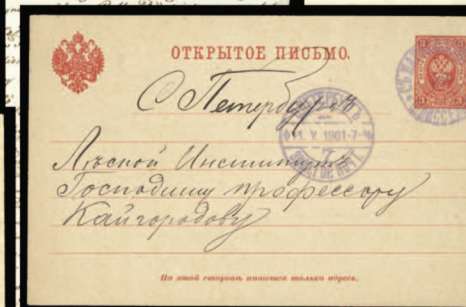 ОТКРЫТОЕ ПИСЬМО.
С Петербургъ
11. V. 1901-7-
Лѣсной Институтъ
Господину профессору
Кайгородову
На этой сторонѣ пишется только адресъ.